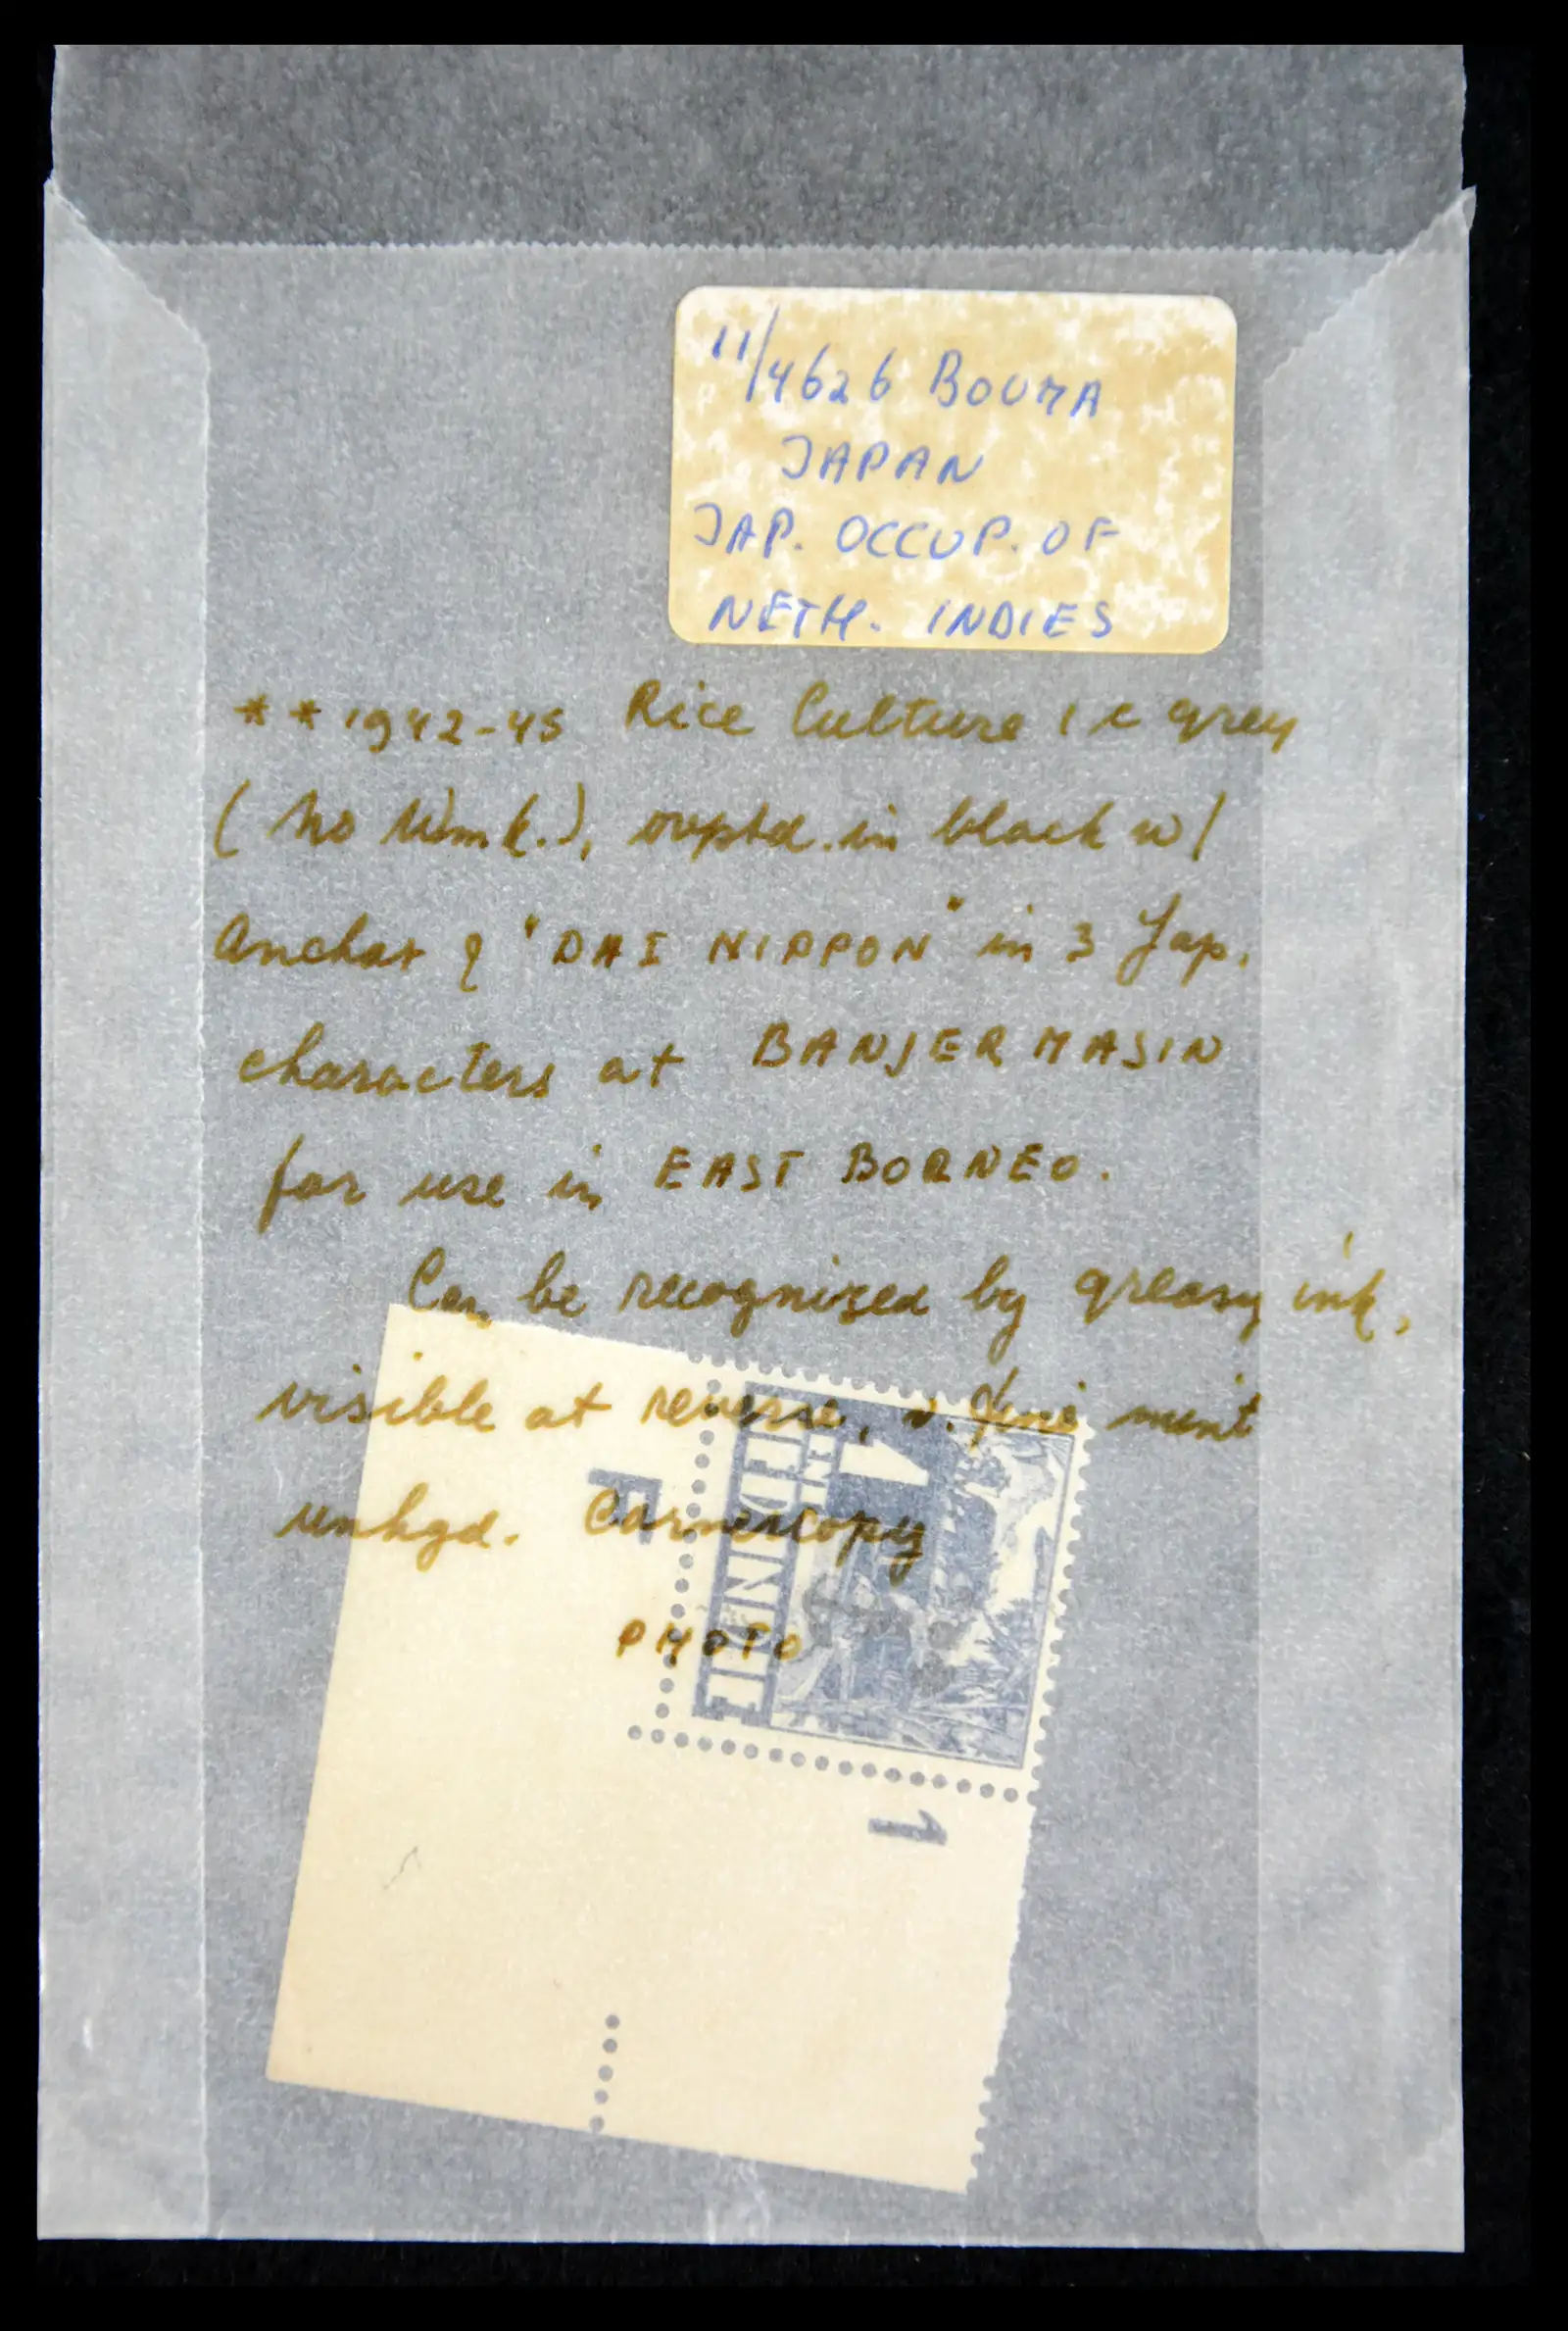 11/4626 BOUMA
JAPAN
JAP. OCCUP. OF
NETH. INDIES
** 1942-45 Rice Culture 1 c grey
(no Wmk.), ovptd. in black w/
Anchor & "DAI NIPPON" in 3 Jap.
characters at BANJERMASIN
for use in EAST BORNEO.
Can be recognized by greasy ink,
visible at reverse, v. fine mint
unhgd. Cornercopy
PHOTO
F
1
NED. INDIE
1